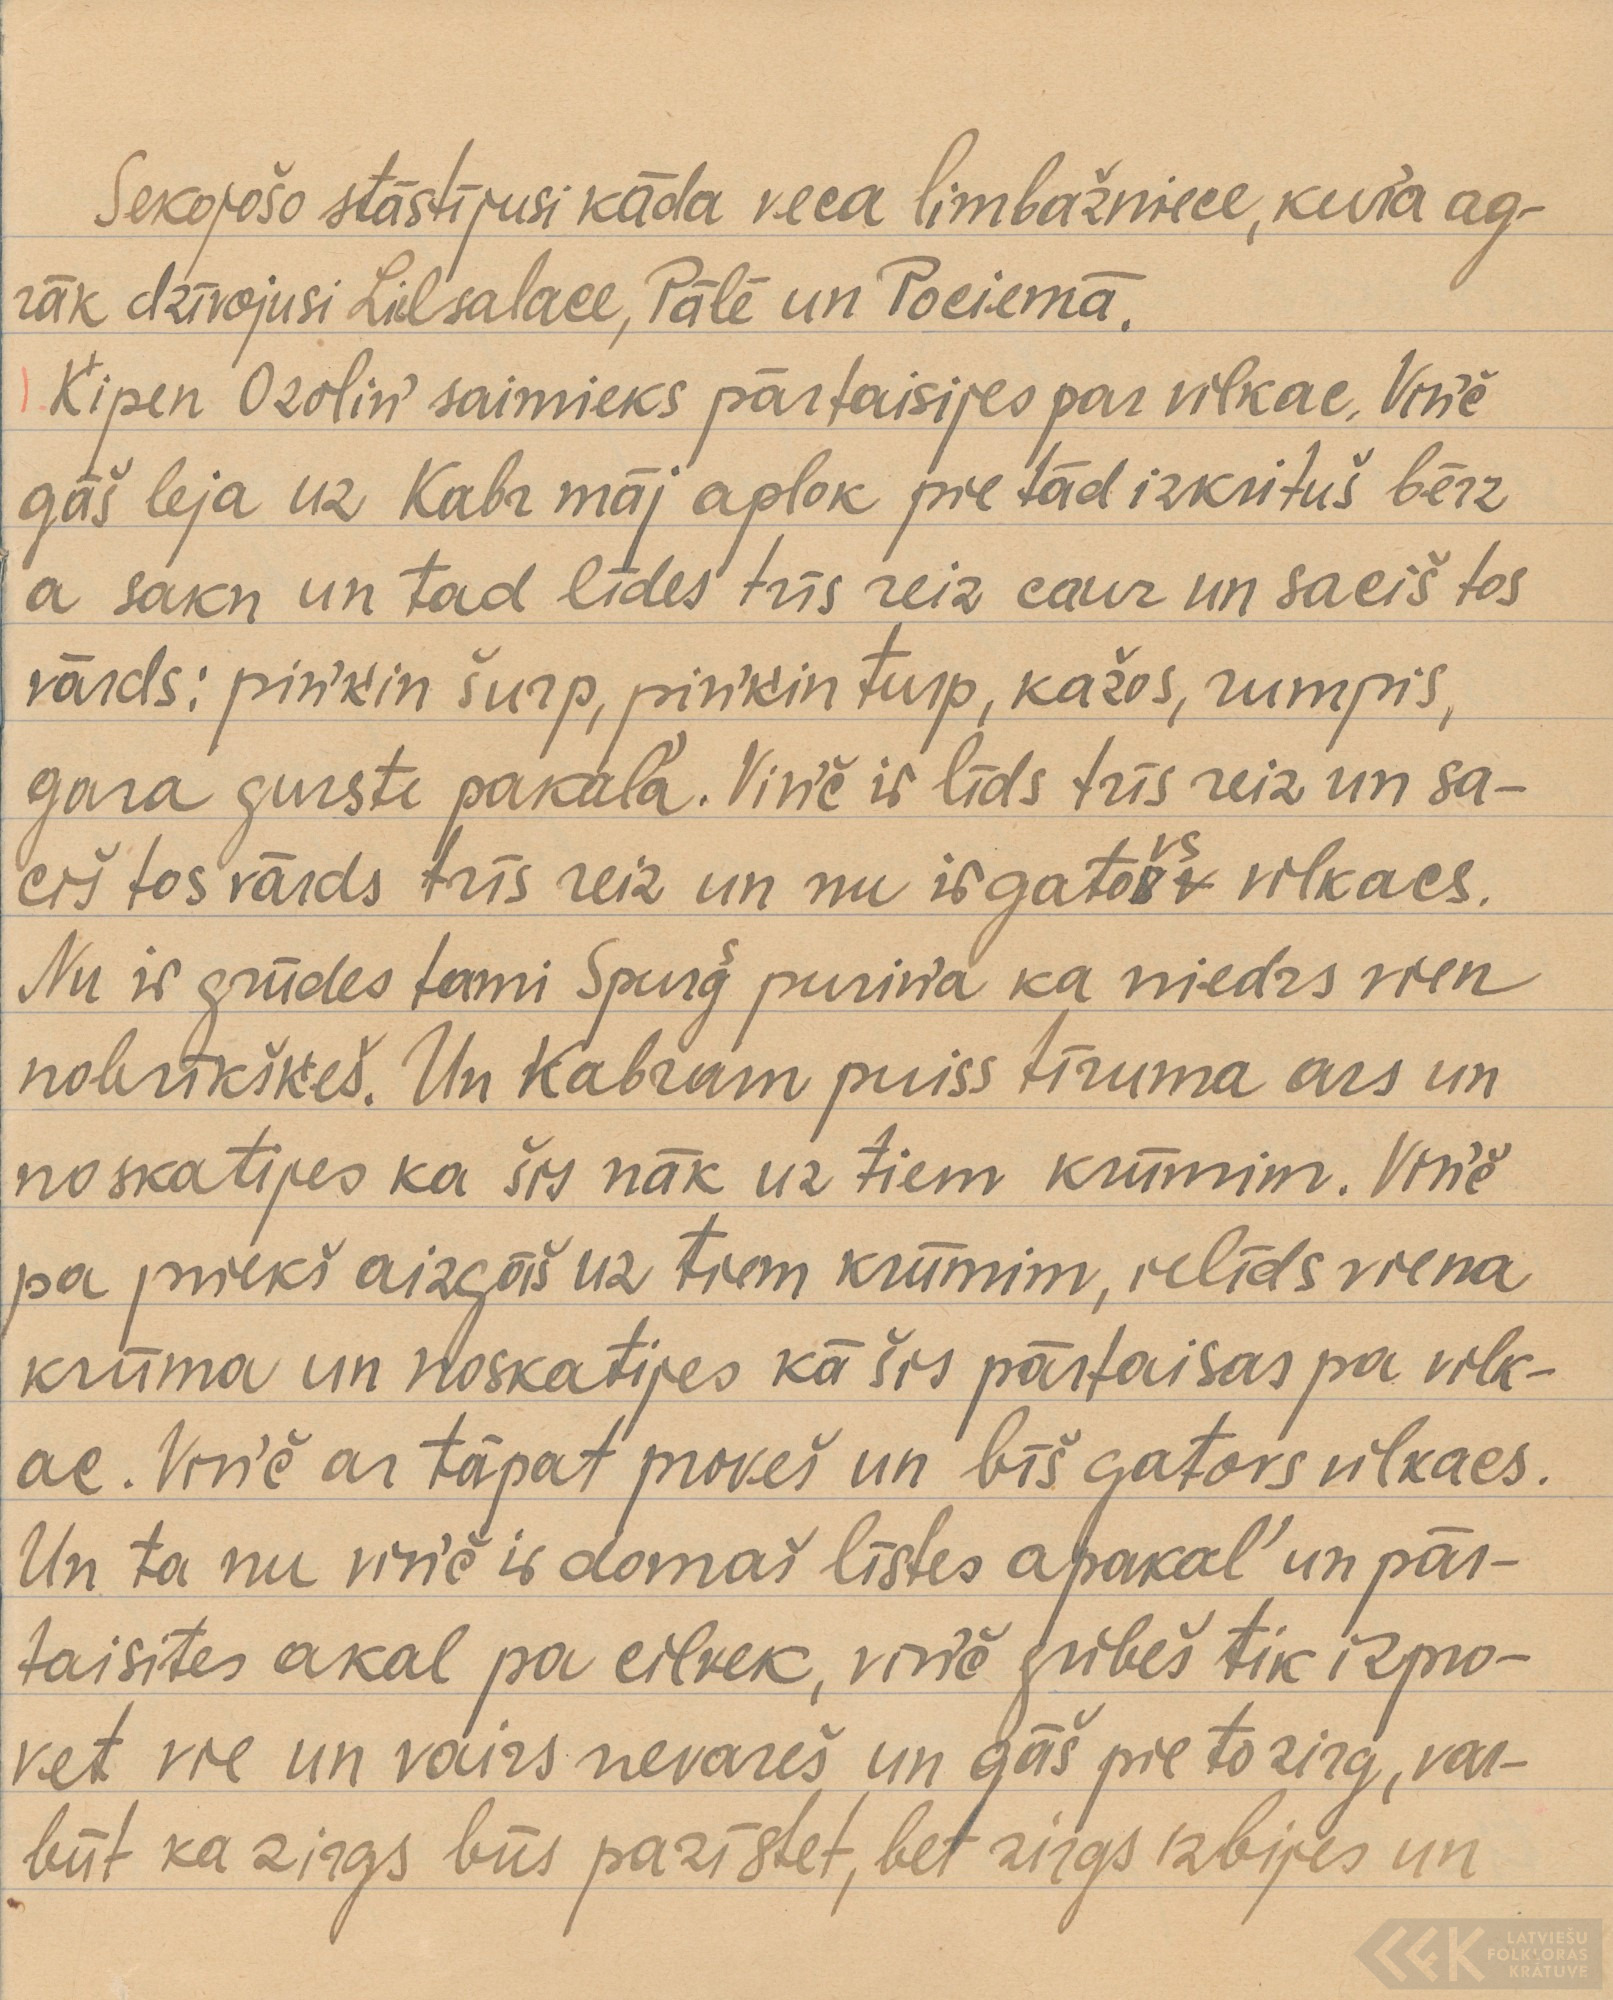 Sekojošo stāstījusi kāda veca limbažniece, kuŗa ag-
rāk dzīvojusi Lielsalacē, Pālē un Pociemā.
Ķipen Ozoliņ saimieks pārtaisijes par vilkac. Viņč
gāš leja uz Kabr māj aplok pie tād izkrituš bērz
a sakn un tad līdes trīs reiz caur un saciš tos
vārds: piņķin šurp, piņķin turp, kažos, rumpis,
gara gurste pakaļa. Viņč ir līds trīs reiz un sa-
ciš tos vārds trīs reiz un nu ir gatovs vilkacs.
Nu ir grūdes tami Spurģš puriņa ka niedrs vien
nobrīkšķeš. Un Kabram puiss tīruma ars un
noskatijes ka šis nāk uz tiem krūmim. Viņč
pa priekš aizgāš uz tiem krūmim, ielīds viena
krūma un noskatijes kā šis pārtaisas pa vilk-
ac. Viņč ar tāpat proveš un bīš gatovs vilkacs.
Un ta nu viņč ir domaš līstes apakaļ un pār-
taisites akal pa cilvek, viņč gribeš tik izpro-
vet vie un vairs nevareš un gāš pie to zirg, var-
būt ka zirgs būs pazīstet, bet zirgs izbijes un
LATVIEŠU
FOLKLORAS
KRĀTUVE